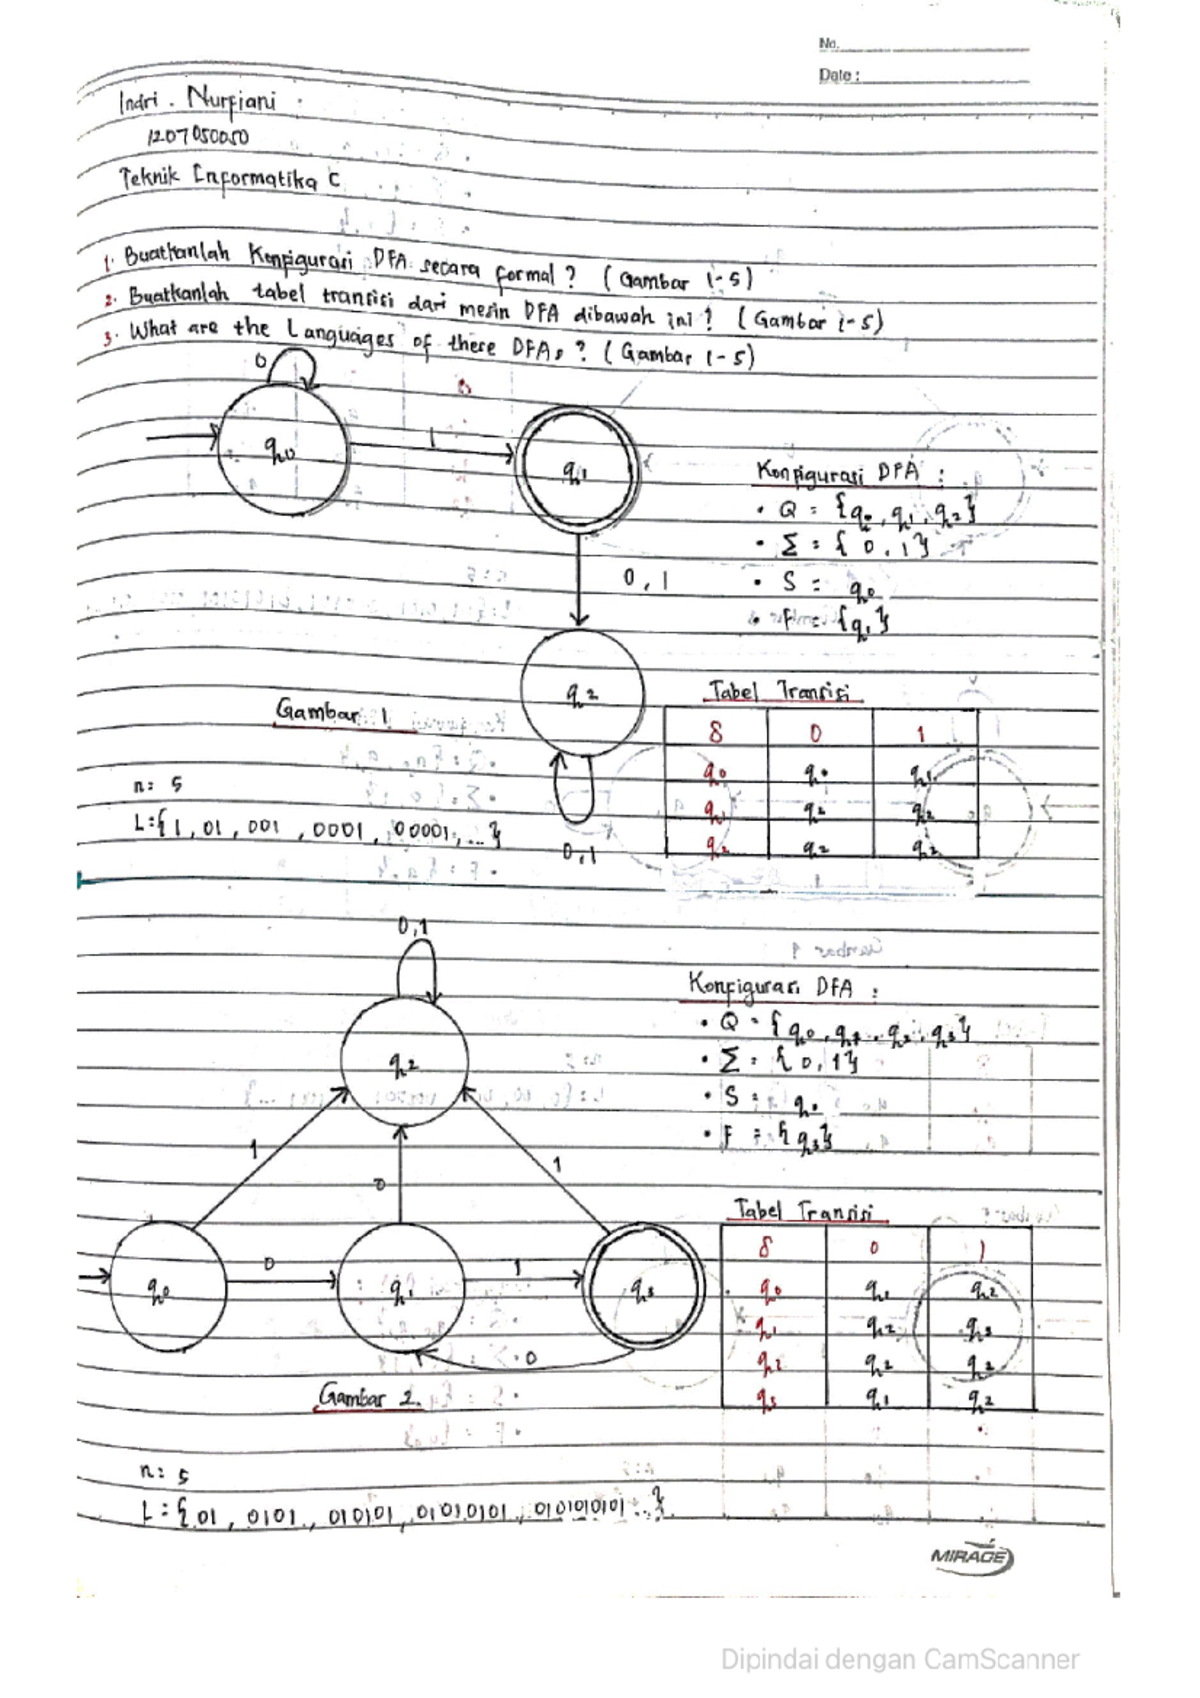 No.
Date :
Indri . Nurfiani
1207050050
Teknik Informatika C
1. Buatkanlah Konfigurasi DFA secara formal ? ( Gambar 1-5 )
2. Buatkanlah tabel transisi dari mesin DFA dibawah ini ? ( Gambar 1-5 )
3. What are the Languages of these DFAs ? ( Gambar 1-5 )
0
q0
1
q1
0,1
q2
0,1
Gambar 1
Konfigurasi DFA :
• Q = {q0, q1, q2}
• Σ = { 0, 1 }
• S = q0
• F = {q1}
Tabel Transisi
δ 0 1
q0 q0 q1
q1 q2 q2
q2 q2 q2
n: 5
L:{ 1, 01, 001, 0001, 00001, ... }
0,1
q2
1
0
1
q0
0
q1
1
q3
0
Gambar 2.
Konfigurasi DFA :
• Q = { q0, q1, q2, q3}
• Σ = { 0, 1 }
• S = q0
• F = { q3}
Tabel Transisi
δ 0 1
q0 q1 q2
q1 q2 q3
q2 q2 q2
q3 q1 q2
n: 5
L:{ 01, 0101, 010101, 01010101, 0101010101 ...}
MIRAGE
Dipindai dengan CamScanner